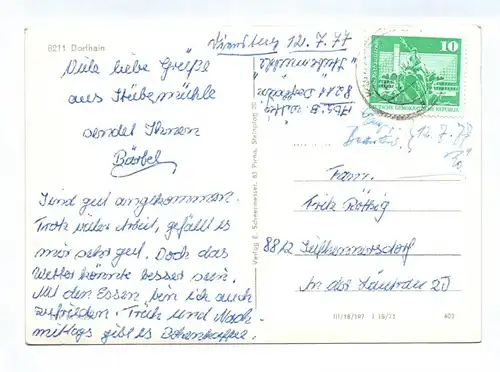 8211 Dorfhain
Viele liebe Grüße
aus Stübemühle
sendet Ihnen
Bärbel
Sind gut angekommen.
Trotz vieler Arbeit, gefällt es
mir sehr gut. Doch das
Wetter könnte besser sein.
Mit den Essen bin ich auch
zufrieden. Früh und Nach-
mittags gibt es Bohnenkaffee.
Dienstag 12.7.77
8211 Dorfhain
10
DEUTSCHE DEMOKRATISCHE REPUBLIK
12.7.77
Fam.
Fritz Röthig
8812 Seifhennersdorf
In der Läuterau 20
Verlag E. Schwermesser, 83 Pirna, Steinplatz 20
III/18/197 J 16/73 403